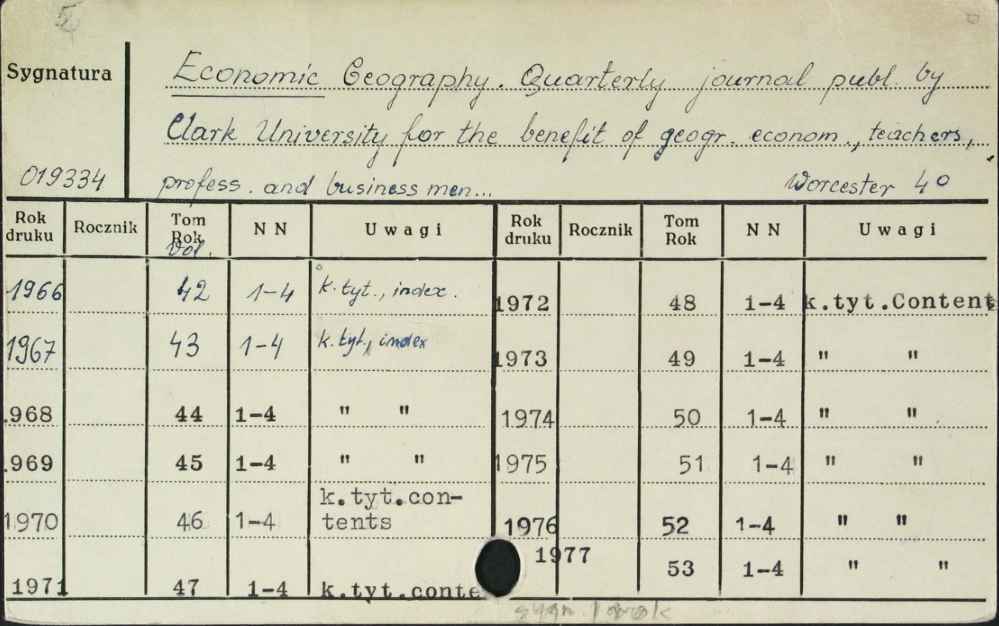 5
Sygnatura
Economic Geography. Quarterly journal publ. by
Clark University for the benefit of geogr. econom., teachers,
019334
profess. and business men...
Worcester 40
Rok druku Rocznik Tom Rok Vol. N N Uwagi Rok druku Rocznik Tom Rok N N Uwagi
1966 42 1-4 k.tyt., index.
1967 43 1-4 k.tyt., index
.968 44 1-4 " "
.969 45 1-4 " "
1970 46 1-4 k.tyt.con-
tents
1971 47 1-4 k.tyt.conte
1972 48 1-4 k.tyt.Content
1973 49 1-4 " "
1974 50 1-4 " "
1975 51 1-4 " "
1976 52 1-4 " "
1977 53 1-4 " "